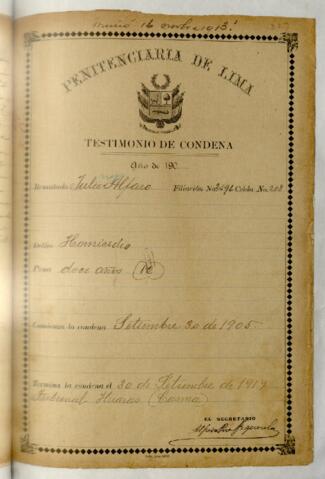 Murió 16 octubre 1913
PENITENCIARIA DE LIMA
TESTIMONIO DE CONDENA
Año de 190
Rematado Julio Alfaro Filiación No. 2596 Celda No. 208
Delito Homicidio
Pena doce años (12)
Comienza la condena Setiembre 30 de 1905
Termina la condena el 30 de Setiembre de 1917
Tribunal Huaraz (Casma)
EL SECRETARIO